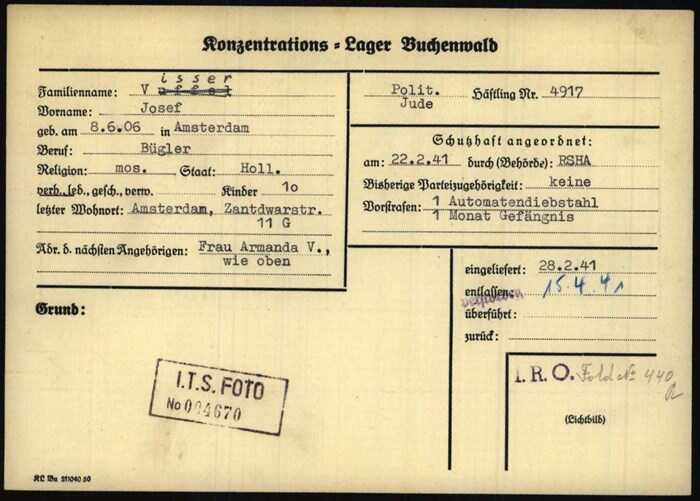 Konzentrations-Lager Buchenwald
isser
Familienname: V
Vorname: Josef
geb. am 8.6.06 in Amsterdam
Beruf: Bügler
Religion: mos. Staat: Holl.
verh., led., gesch., verw. Kinder 1o
letzter Wohnort: Amsterdam, Zantdwarstr.
11 G
Adr. d. nächsten Angehörigen: Frau Armanda V.,
wie oben
Grund:
Polit. Häftling Nr. 4917
Jude
Schutzhaft angeordnet:
am: 22.2.41 durch (Behörde): RSHA
Bisherige Parteizugehörigkeit: keine
Vorstrafen: 1 Automatendiebstahl
1 Monat Gefängnis
eingeliefert: 28.2.41
entlassen: 15.4.41
verstorben
überführt:
zurück:
I.R.O. Fold No 440
(Lichtbild)
I.T.S. FOTO
No 004670
KL Bu 211040 50